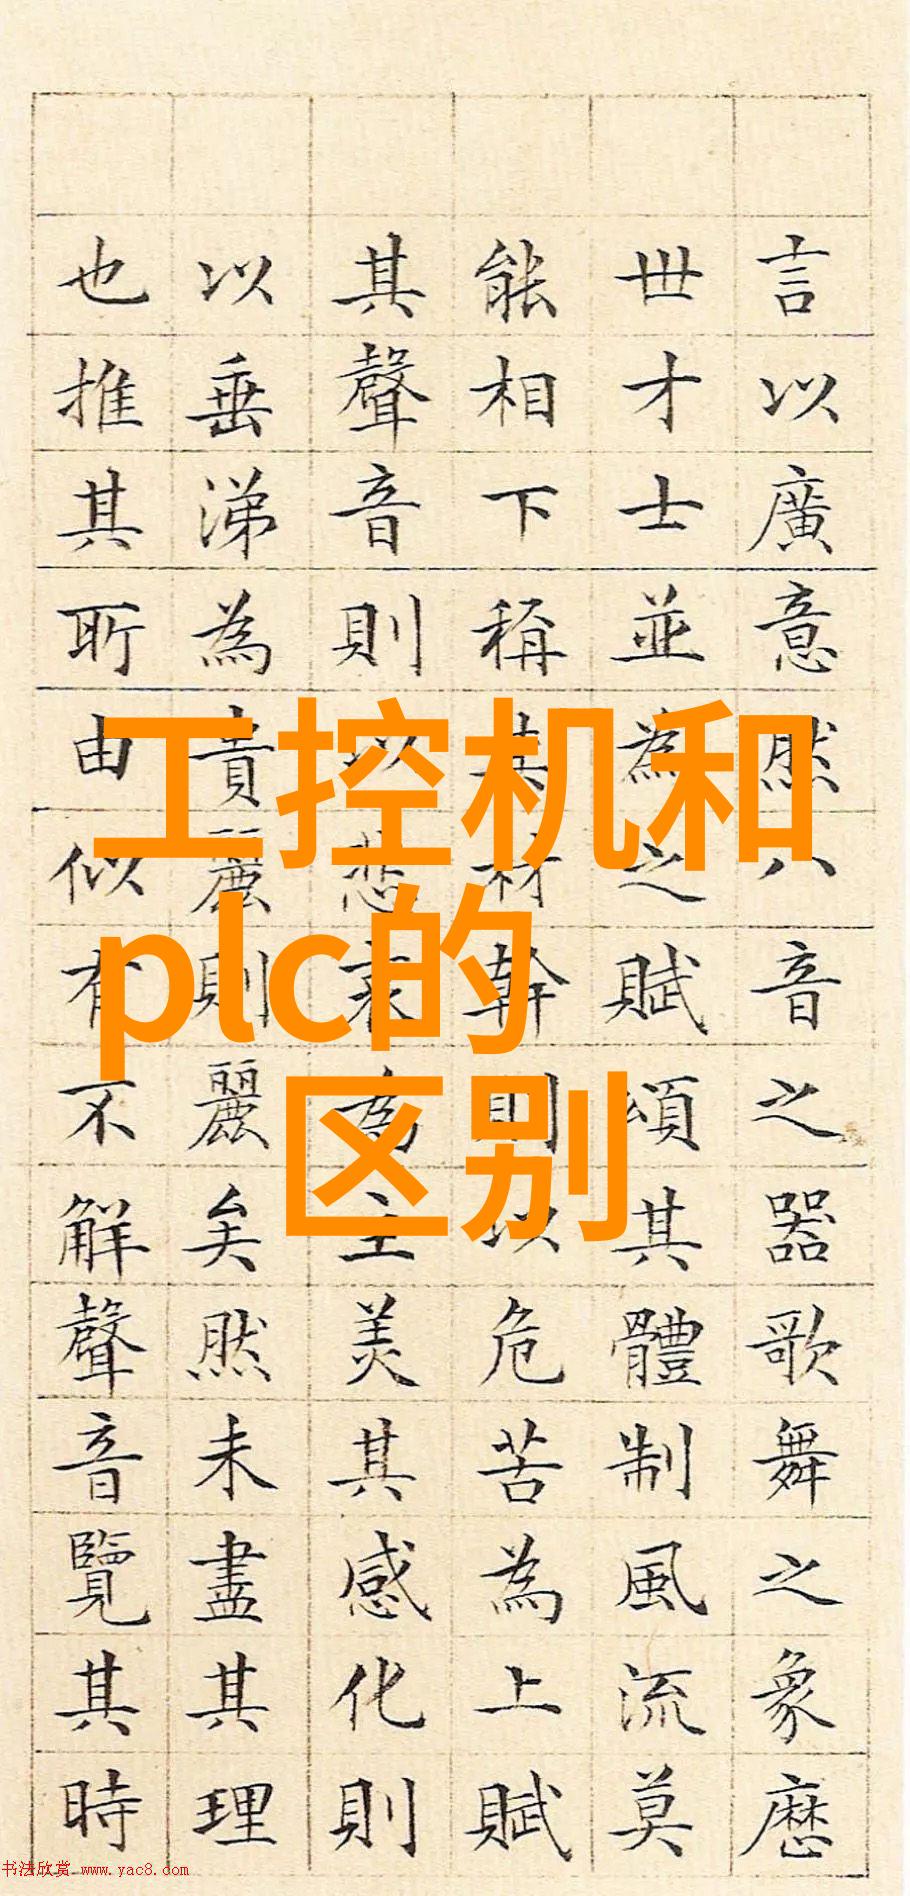 工控机和
plc的
区别
言以廣意然八音之器歌舞之象歷
世才士並為之賦頌其體制風流莫
能相下稱其材幹則以危苦為上賦
其聲音則以悲哀為主美其感化則
以垂涕為貴麗則麗矣然未盡其理
也推其所由似有不解聲音覽其時
书法欣赏 www.yac8.com